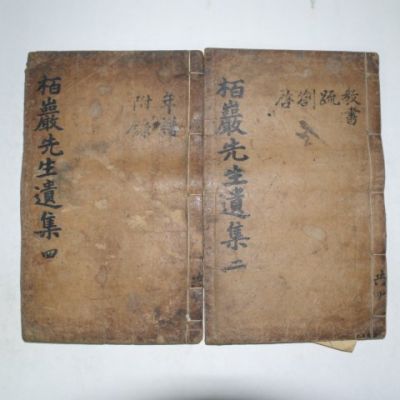 教書
疏
劄
啓
栢巖先生遺集 二
共
年譜
附錄
栢巖先生遺集 四